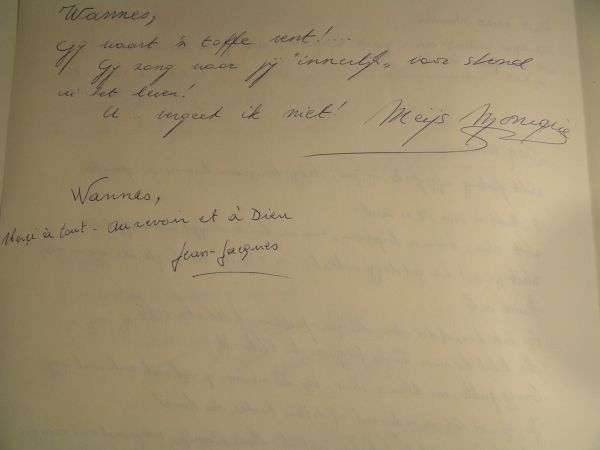 Wannes,
Gij waart 'n toffe vent!....
Gij zong waar jij "innerlijk" voor stond
in het leven!
U... vergeet ik niet! Meijs Monique
Wannes,
Merçi à tout - Au revoir et à Dieu
Jean-Jacques